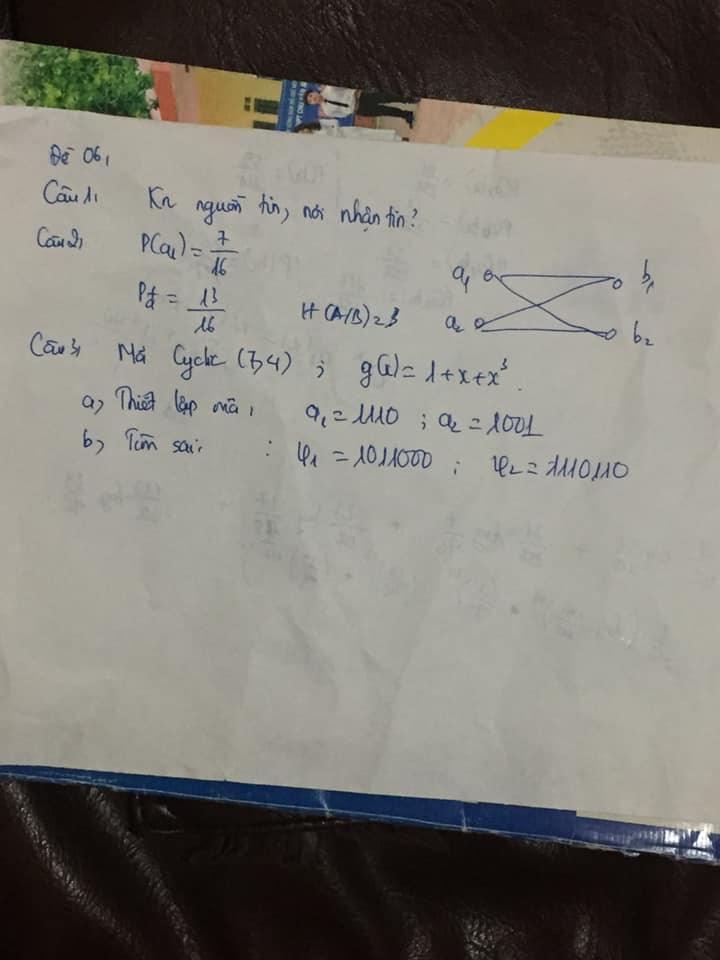 Đề 06,
Câu 1, Kn nguồn tin, nơi nhận tin?
Câu 2, P(a₁) = 7/16
Pđ = 13/16 H(A/B) = ?
a₁ b₁
a₂ b₂
Câu 3, Mã Cyclic (7,4) ; g(x) = 1+x+x³.
a, Thiết lập mã, a₁ = 1110 ; a₂ = 1001
b, Tìm sai, : φ₁ = 1011000 ; φ₂ = 1110110